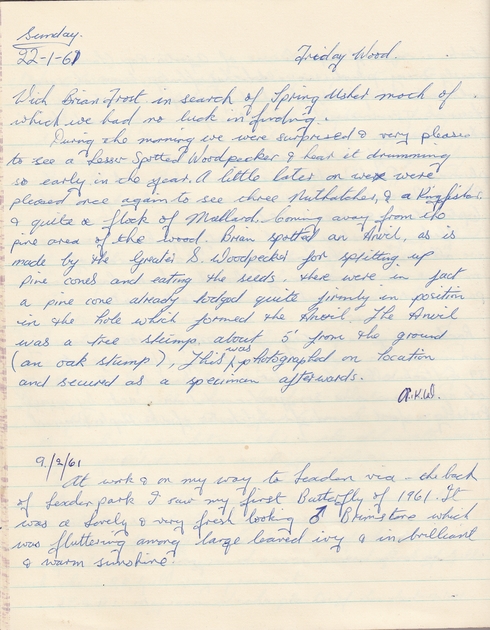 Sunday.
22-1-61 Friday Wood.
With Brian Frost in search of Spring Usher moth of
which we had no luck in finding.
During the morning we were surprised & very pleased
to see a Lesser Spotted Woodpecker & hear it drumming
so early in the year. A little later on we were
pleased once again to see three Nuthatches, & a Kingfisher,
& quite a flock of Mallard. Coming away from the
pine area of the wood. Brian spotted an Anvil, as is
made by the Greater S. Woodpecker for splitting up
Pine cones and eating the seeds. there were in fact
a pine cone already lodged quite firmly in position
in the hole which formed the Anvil. The Anvil
was a tree stump. about 5' from the ground
(an oak stump), This was photographed on location
and secured as a specimen afterwards.
9/2/61
At work & on my way to Leaden via - the back
of park I saw my first Butterfly of 1961. It
was a lovely & very fresh looking ♂ Brimstone which
was fluttering among large leaved ivy & in brilliant
& warm sunshine.